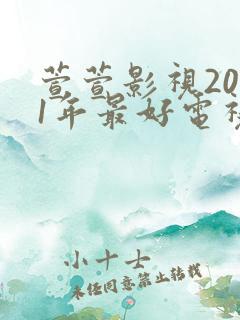 萱萱影視20
1年最好電視
小十士
未经同意禁止转载